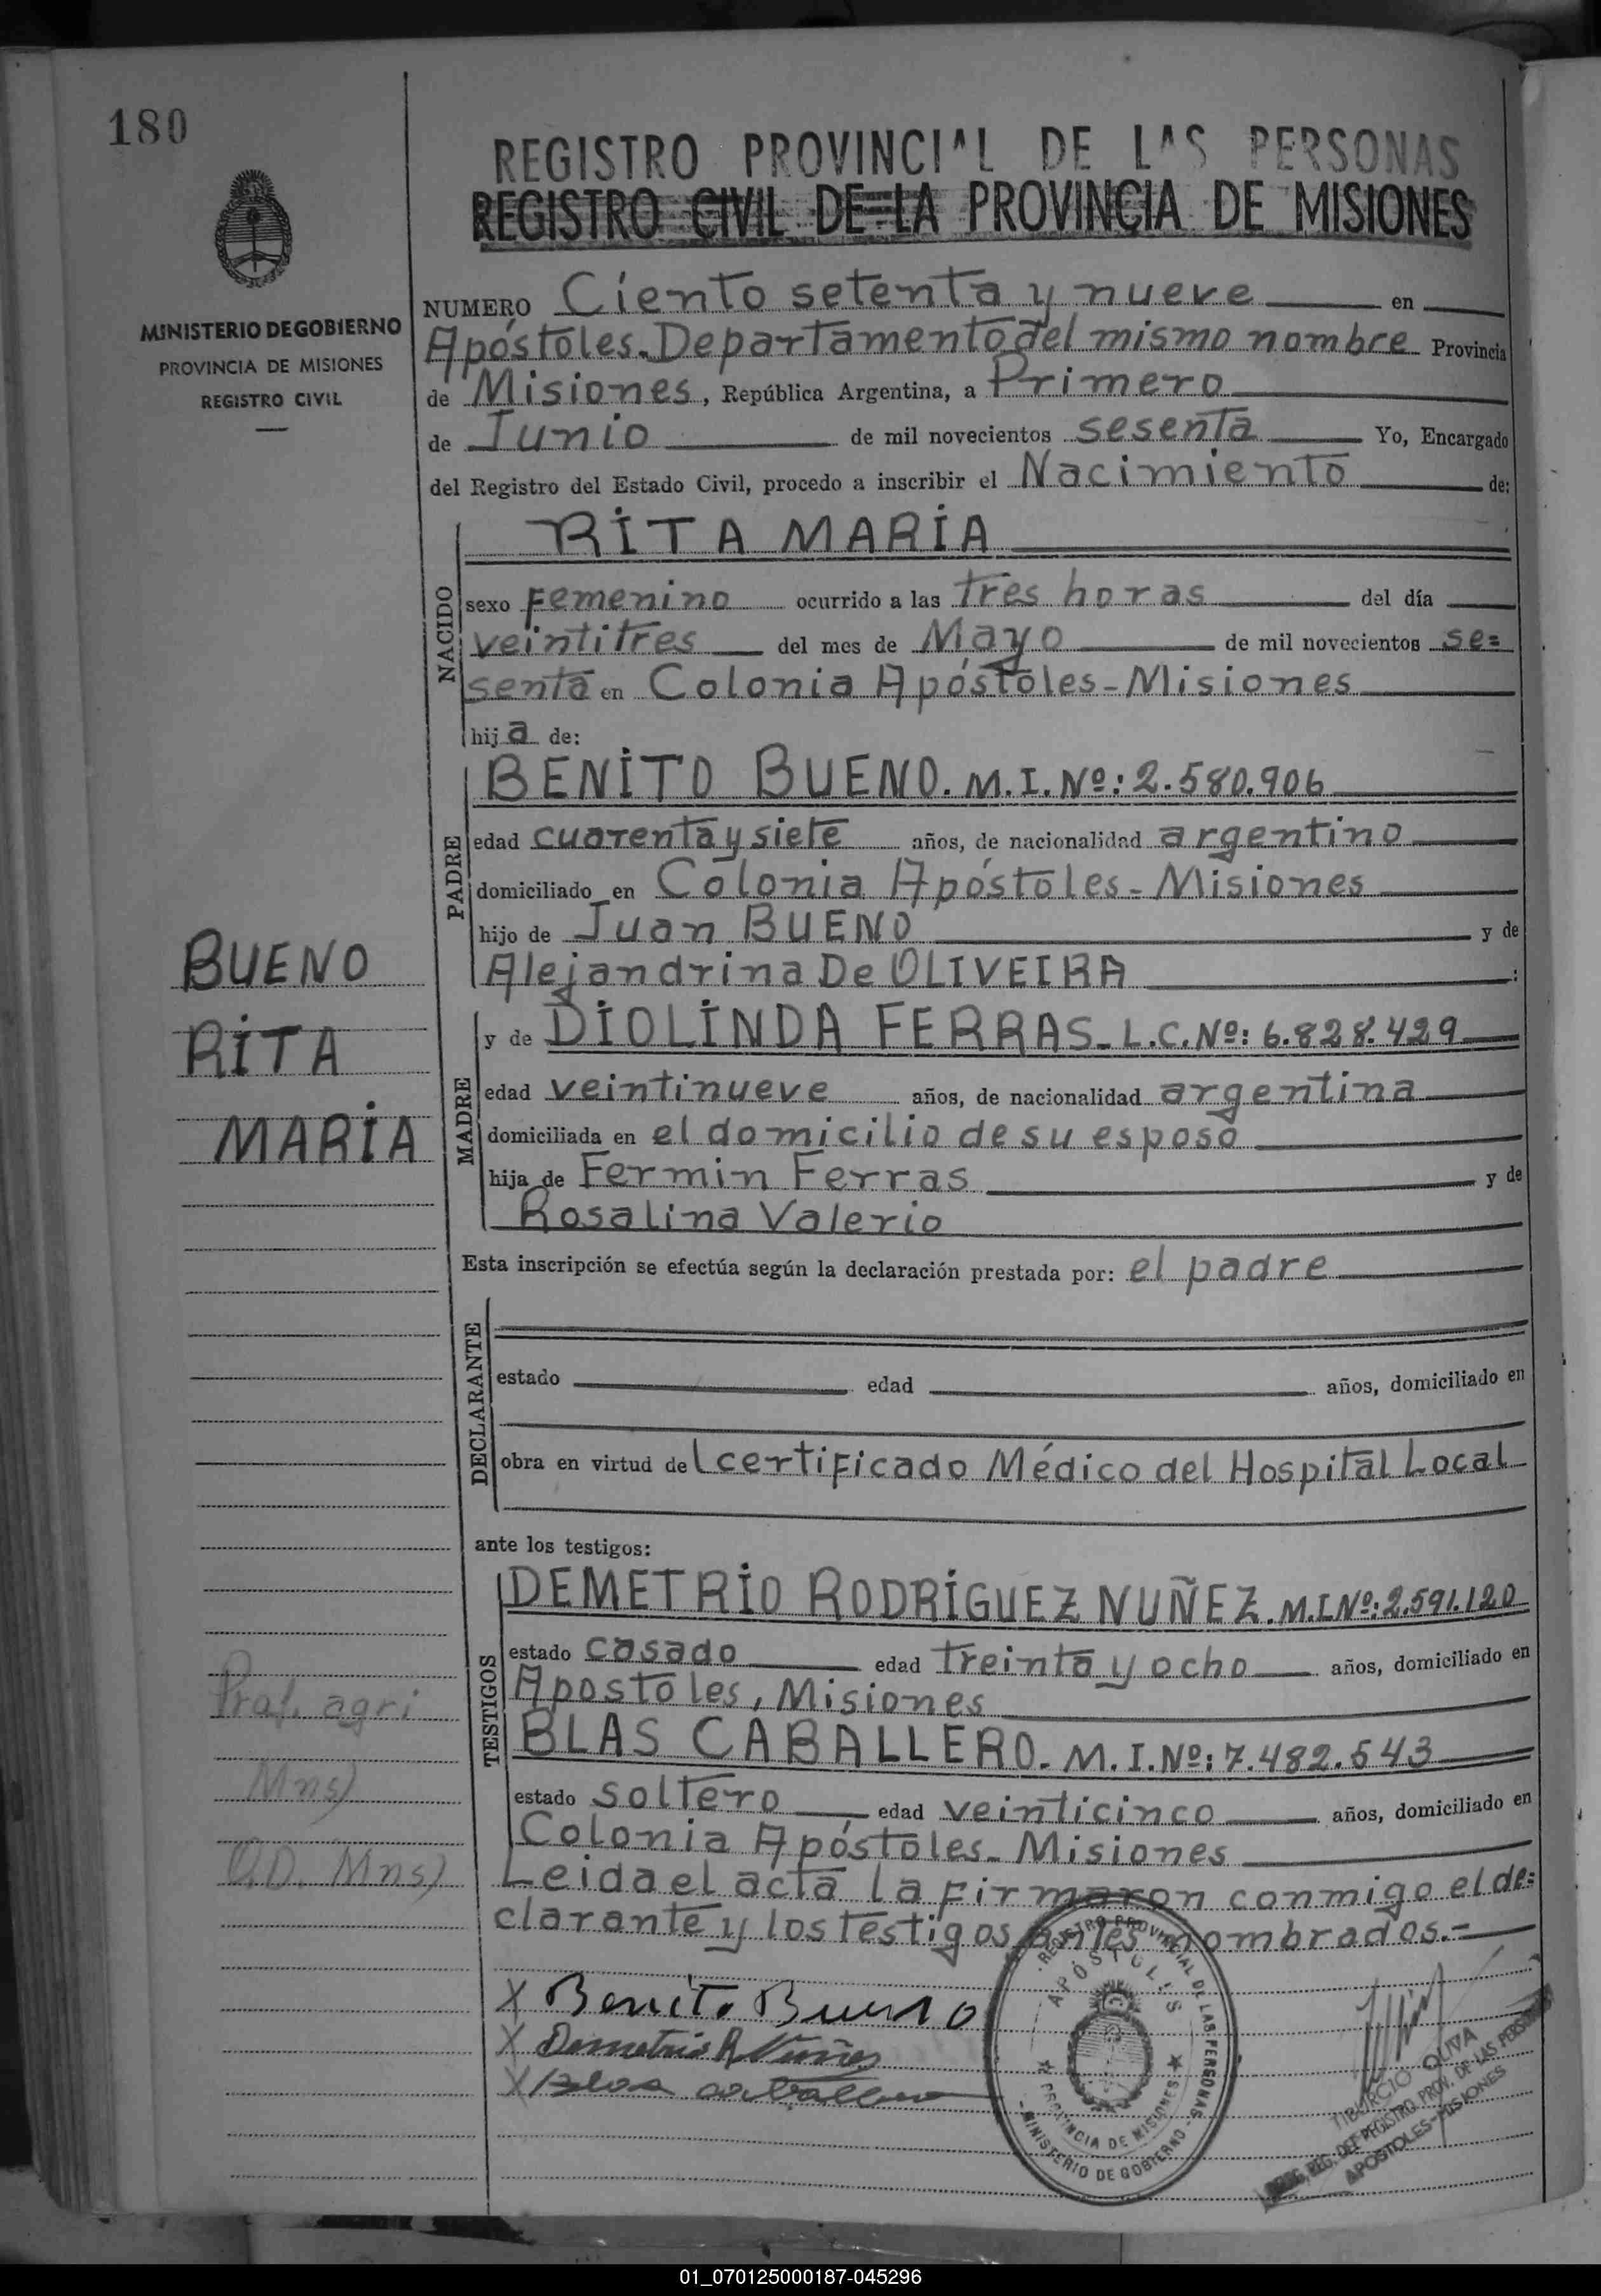 180
REGISTRO PROVINCIAL DE LAS PERSONAS
REGISTRO CIVIL DE LA PROVINCIA DE MISIONES
MINISTERIO DE GOBIERNO
PROVINCIA DE MISIONES
REGISTRO CIVIL
NUMERO Ciento setenta y nueve en
Apóstoles. Departamento del mismo nombre Provincia
de Misiones, República Argentina, a Primero
de Junio de mil novecientos sesenta Yo, Encargado
del Registro del Estado Civil, procedo a inscribir el Nacimiento de:
NACIDO
RITA MARIA
sexo Femenino ocurrido a las tres horas del día
veintitres del mes de Mayo de mil novecientos se=
senta en Colonia Apóstoles-Misiones
hija de:
PADRE
BENITO BUENO. M.I.Nº: 2.580.906
edad cuarenta y siete años, de nacionalidad argentino
domiciliado en Colonia Apóstoles-Misiones
hijo de Juan BUENO y de
Alejandrina De OLIVEIRA :
BUENO
RITA
MARIA
MADRE
y de DIOLINDA FERRAS. L.C.Nº: 6.828.429
edad veintinueve años, de nacionalidad argentina
domiciliada en el domicilio de su esposo
hija de Fermin Ferras y de
Rosalina Valerio
Esta inscripción se efectúa según la declaración prestada por: el padre
DECLARANTE
estado edad años, domiciliado en
obra en virtud del certificado Médico del Hospital Local
ante los testigos:
TESTIGOS
DEMETRIO RODRIGUEZ NUÑEZ. M.I.Nº: 2.591.120
estado casado edad treinta y ocho años, domiciliado en
Apostoles, Misiones
BLAS CABALLERO. M.I.Nº: 7.482.543
estado soltero edad veinticinco años, domiciliado en
Colonia Apóstoles. Misiones
Prof. agri
Mns)
O.D. Mns)
Leida el acta la firmaron conmigo el de=
clarante y los testigos antes nombrados.=
X Benito Bueno
X Demetrio R Nuñes
X Blas caballero
REGISTRO PROVINCIAL DE LAS PERSONAS
APÓSTOLES
PROVINCIA DE MISIONES
MINISTERIO DE GOBIERNO
TIBURCIO OLIVA
REG. DEL REGISTRO PROV. DE LAS PERSONAS
APOSTOLES-MISIONES
01_070125000187-045296